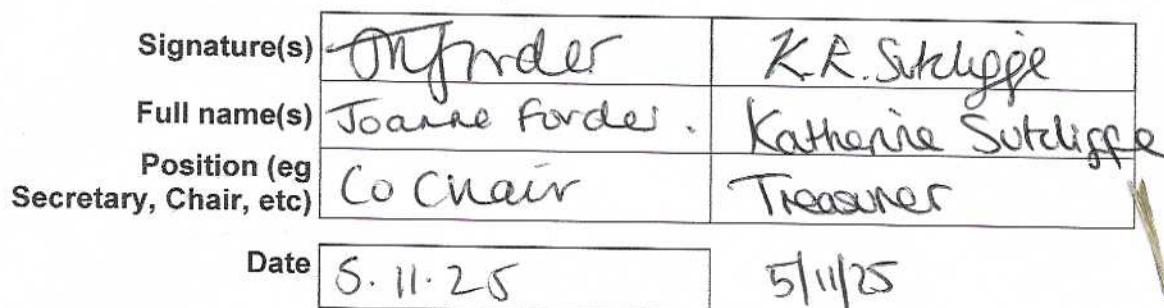 Signature(s) JMForder K.R. Sutcliffe
Full name(s) Joanne Forder. Katherine Sutcliffe
Position (eg
Secretary, Chair, etc) Co Chair Treasurer
Date 5.11.25 5/11/25